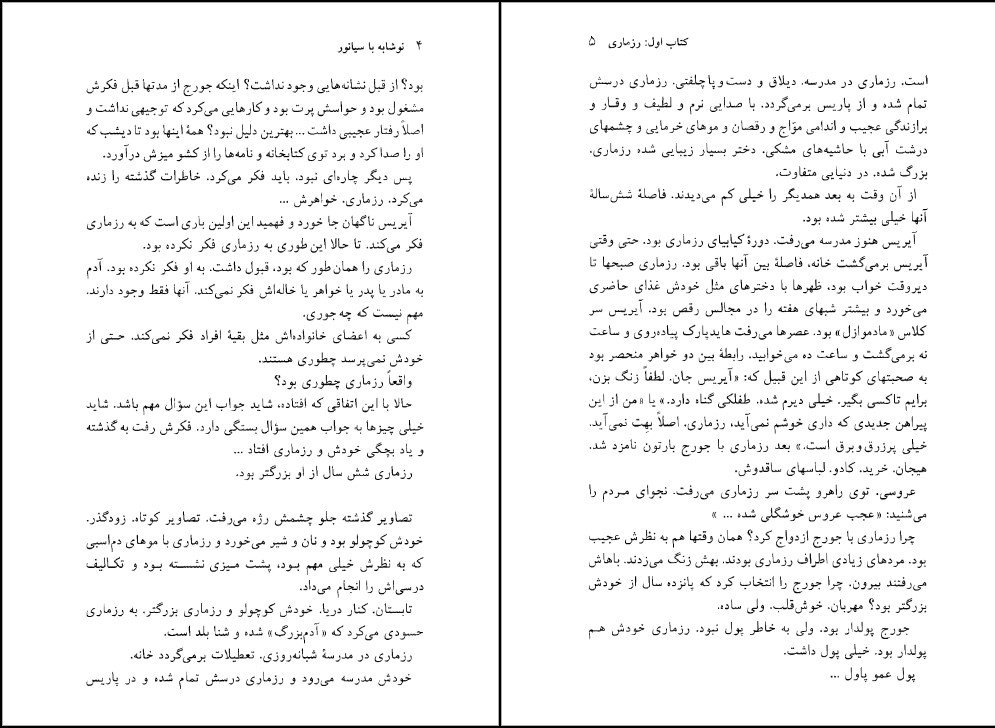 ۴ نوشابه با سیانور
بود؟ از قبل نشانه‌هایی وجود نداشت؟ اینکه جورج از مدتها قبل فکرش
مشغول بود و حواسش پرت بود و کارهایی می‌کرد که توجیهی نداشت و
اصلاً رفتار عجیبی داشت ... بهترین دلیل نبود؟ همهٔ اینها بود تا دیشب که
او را صدا کرد و برد توی کتابخانه و نامه‌ها را از کشو میزش درآورد.
پس دیگر چاره‌ای نبود. باید فکر می‌کرد. خاطرات گذشته را زنده
می‌کرد. رزماری. خواهرش ...
آیریس ناگهان جا خورد و فهمید این اولین باری است که به رزماری
فکر می‌کند. تا حالا این طوری به رزماری فکر نکرده بود.
رزماری را همان طور که بود، قبول داشت. به او فکر نکرده بود. آدم
به مادر یا پدر یا خواهر یا خاله‌اش فکر نمی‌کند. آنها فقط وجود دارند.
مهم نیست که چه جوری.
کسی به اعضای خانواده‌اش مثل بقیهٔ افراد فکر نمی‌کند. حتی از
خودش نمی‌پرسد چطوری هستند.
واقعاً رزماری چطوری بود؟
حالا با این اتفاقی که افتاده، شاید جواب این سؤال مهم باشد. شاید
خیلی چیزها به جواب همین سؤال بستگی دارد. فکرش رفت به گذشته
و یاد بچگی خودش و رزماری افتاد ...
رزماری شش سال از او بزرگتر بود.
تصاویر گذشته جلو چشمش رژه می‌رفت. تصاویر کوتاه. زودگذر.
خودش کوچولو بود و نان و شیر می‌خورد و رزماری با موهای دم‌اسبی
که به نظرش خیلی مهم بود، پشت میزی نشسته بود و تکالیف
درسی‌اش را انجام می‌داد.
تابستان. کنار دریا. خودش کوچولو و رزماری بزرگتر. به رزماری
حسودی می‌کرد که «آدم‌بزرگ» شده و شنا بلد است.
رزماری در مدرسهٔ شبانه‌روزی. تعطیلات برمی‌گردد خانه.
خودش مدرسه می‌رود و رزماری درسش تمام شده و در پاریس
کتاب اول: رزماری ۵
است. رزماری در مدرسه. دیلاق و دست‌وپاچلفتی. رزماری درسش
تمام شده و از پاریس برمی‌گردد. با صدایی نرم و لطیف و وقار و
برازندگی عجیب و اندامی موّاج و رقصان و موهای خرمایی و چشمهای
درشت آبی با حاشیه‌های مشکی. دختر بسیار زیبایی شده رزماری.
بزرگ شده. در دنیایی متفاوت.
از آن وقت به بعد همدیگر را خیلی کم می‌دیدند. فاصلهٔ شش‌سالهٔ
آنها خیلی بیشتر شده بود.
آیریس هنوز مدرسه می‌رفت. دورهٔ کیابیای رزماری بود. حتی وقتی
آیریس برمی‌گشت خانه، فاصلهٔ بین آنها باقی بود. رزماری صبحها تا
دیروقت خواب بود، ظهرها با دخترهای مثل خودش غذای حاضری
می‌خورد و بیشتر شبهای هفته را در مجالس رقص بود. آیریس سر
کلاس «مادموازل» بود. عصرها می‌رفت هایدپارک پیاده‌روی و ساعت
نه برمی‌گشت و ساعت ده می‌خوابید. رابطهٔ بین دو خواهر منحصر بود
به صحبتهای کوتاهی از این قبیل که: «آیریس جان. لطفاً زنگ بزن،
برایم تاکسی بگیر. خیلی دیرم شده. طفلکی گناه دارد.» یا «من از این
پیراهن جدیدی که داری خوشم نمی‌آید، رزماری. اصلاً بهت نمی‌آید.
خیلی پرزرق‌وبرق است.» بعد رزماری با جورج بارتون نامزد شد.
هیجان. خرید. کادو. لباسهای ساقدوش.
عروسی. توی راهرو پشت سر رزماری می‌رفت. نجوای مردم را
می‌شنید: «عجب عروس خوشگلی شده ... »
چرا رزماری با جورج ازدواج کرد؟ همان وقتها هم به نظرش عجیب
بود. مردهای زیادی اطراف رزماری بودند. بهش زنگ می‌زدند. باهاش
می‌رفتند بیرون. چرا جورج را انتخاب کرد که پانزده سال از خودش
بزرگتر بود؟ مهربان. خوش‌قلب. ولی ساده.
جورج پولدار بود. ولی به خاطر پول نبود. رزماری خودش هم
پولدار بود. خیلی پول داشت.
پول عمو پاول ...